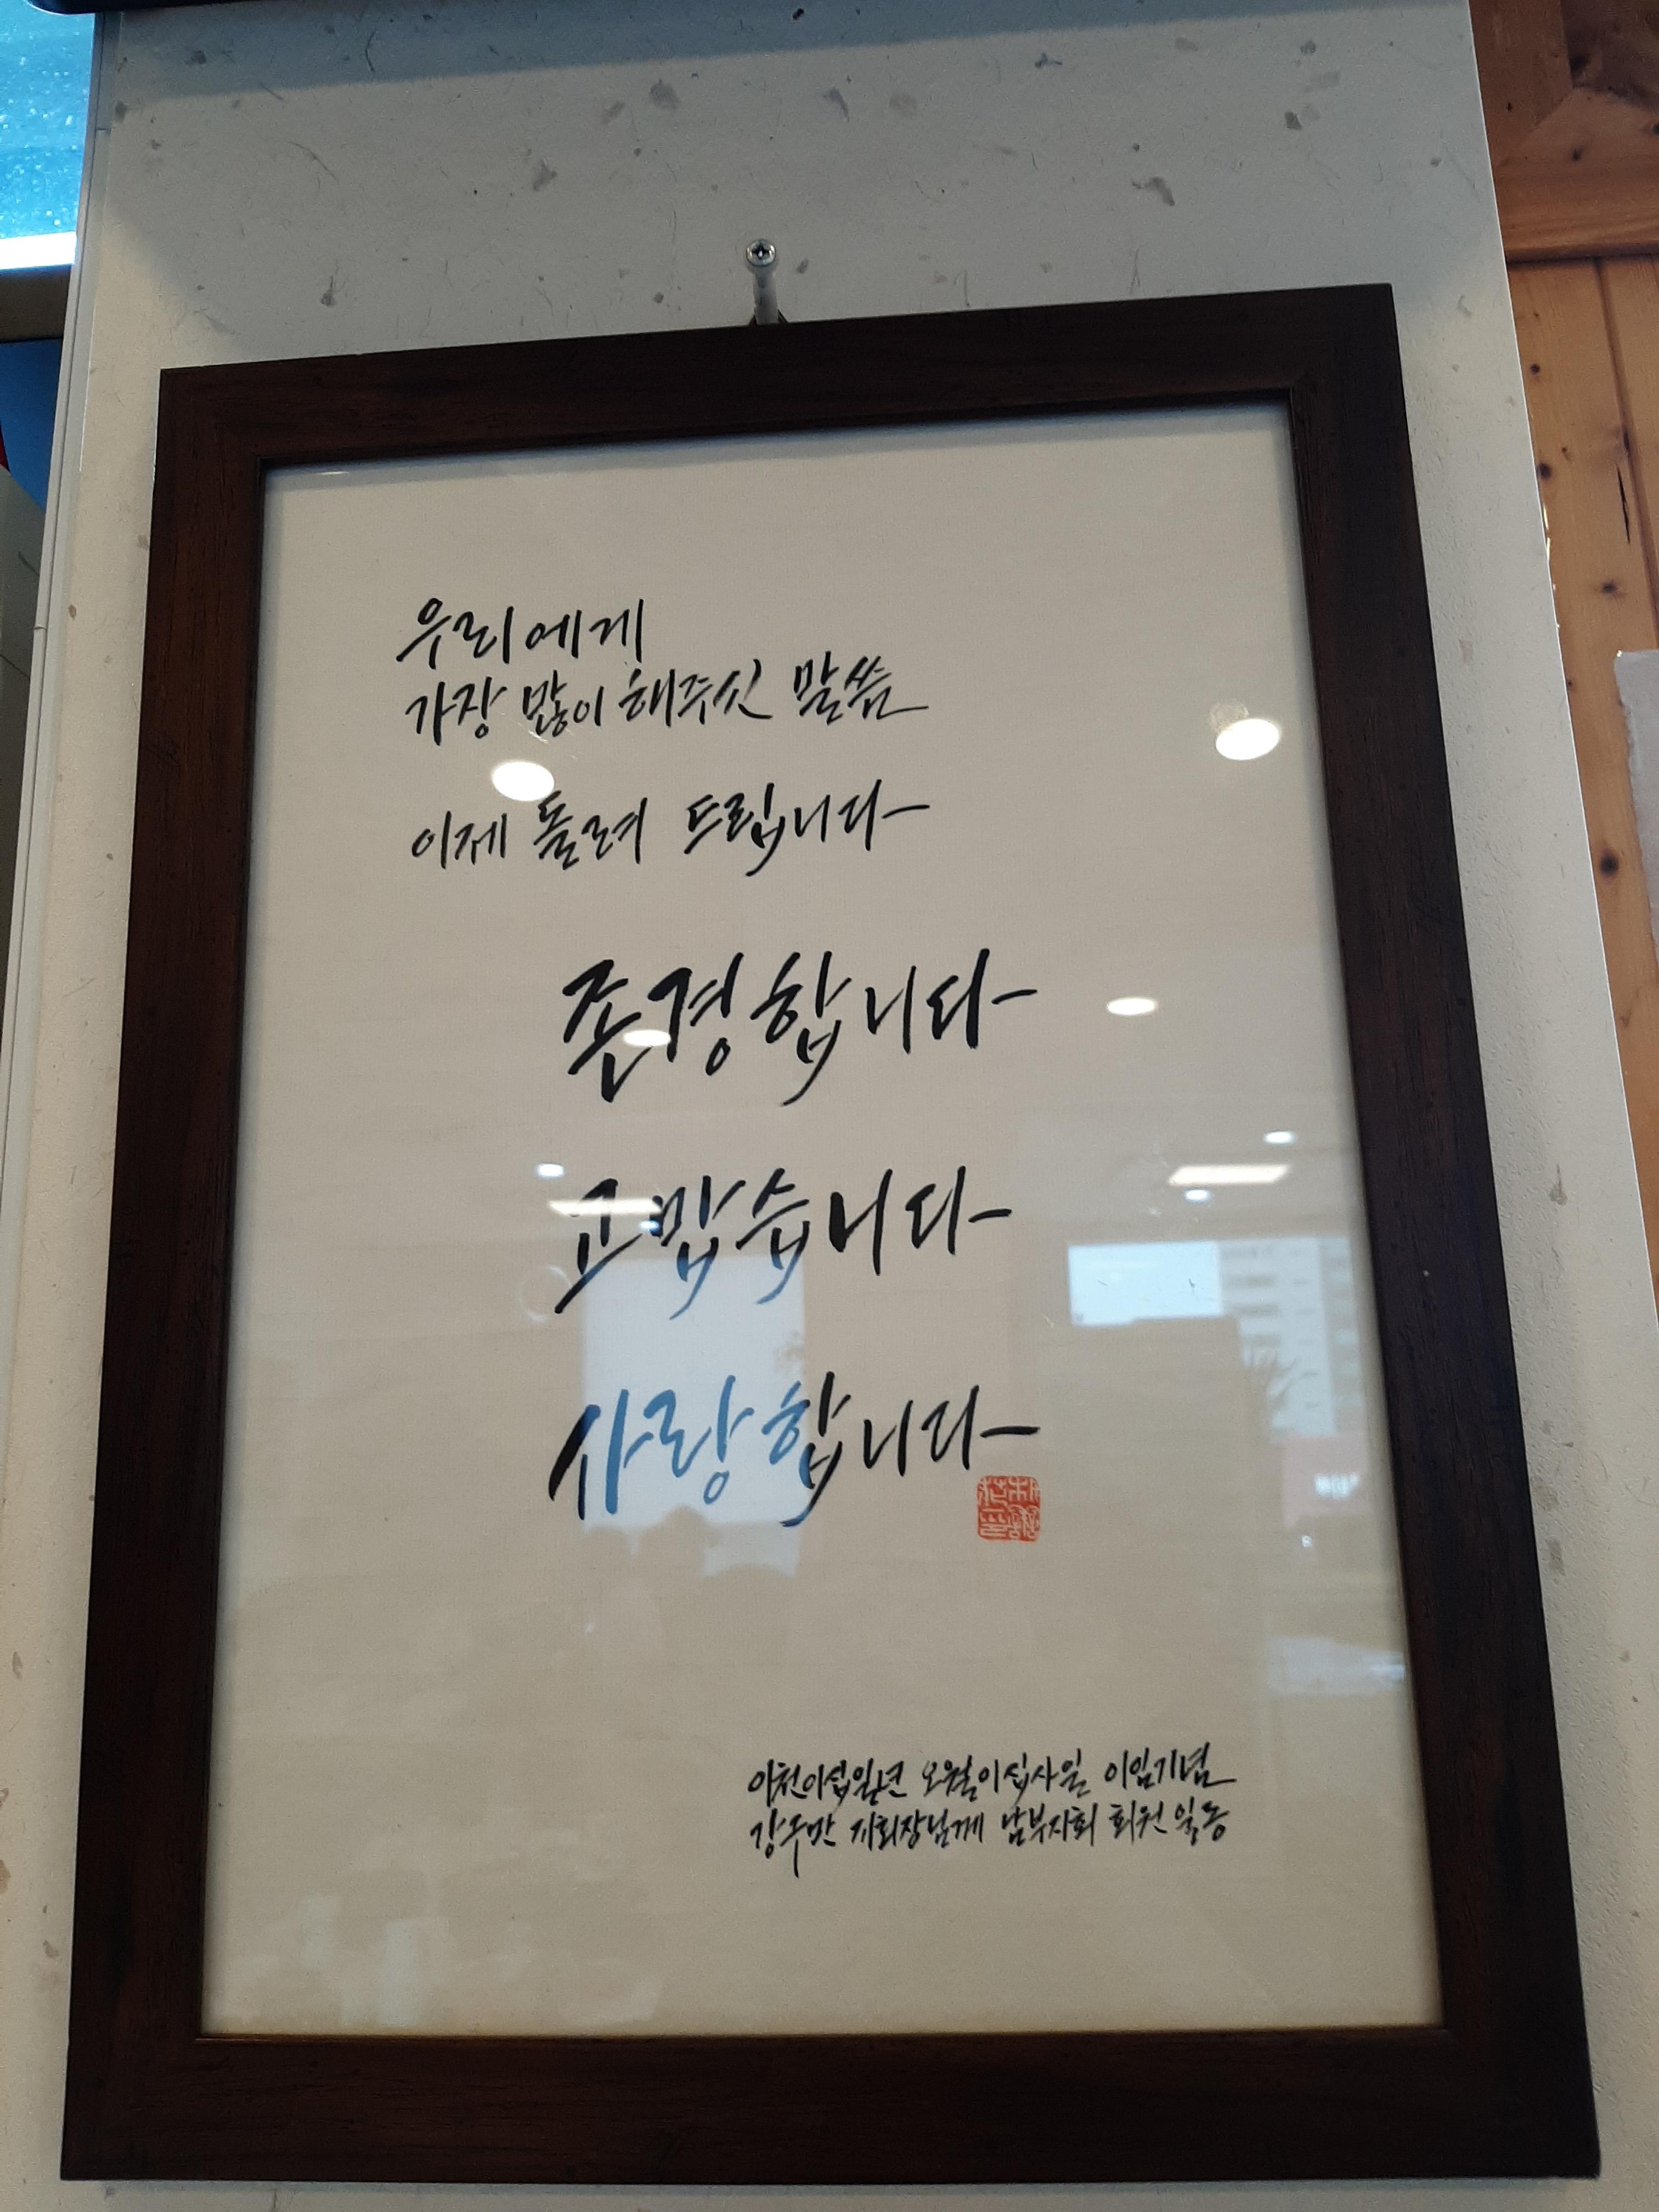 우리에게
가장 많이 해주신 말씀
이제 돌려 드립니다
존경합니다
고맙습니다
사랑합니다
이천이십일년 오월이십사일 이임기념
강두만 지회장님께 남부지회 회원 일동